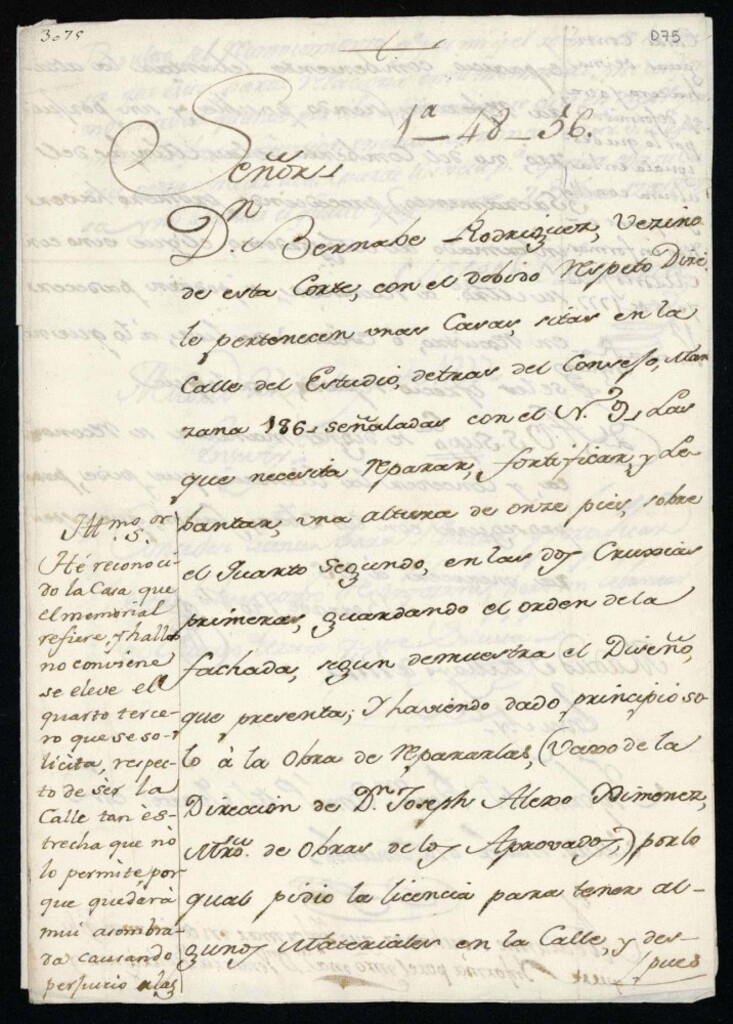 3075
D75
1ª - 48 - 56.
Señor
Dn. Bernabe Rodriguez, Vezino
de esta Corte, con el debido respeto Dize:
le pertenecen unas Casas, sitas en la
Calle del Estudio, detras del Consejo, Man
zana 186, señaladas con el N.º 9, Las
que necesita reparar, fortificar, y Le
bantar, una altura de onze pies, sobre
el Quarto Segundo, en las dos Cruxias
primeras, guardando el orden de la
fachada, segun demuestra el Diseño,
que presenta; Y haviendo dado principio so-
lo à la Obra de repararlas, (Vaxo de la
Dirección de Dn. Joseph Alexo Ximenez,
Mro. de Obras de los Aprovados,) por lo
qual pidio la licencia para tener al-
gunos Materiales en la Calle, y des-
pues
Illmo. Sor.
Hé reconoci-
do la Casa que
el memorial
refiere, y hallo
no conviene
se eleve el
quarto terce-
ro que se so-
licita, respec-
to de sèr la
Calle tan ès-
trecha que nó
lo permite por
que quedarà
mui asombra-
da causando
perjuicio a las